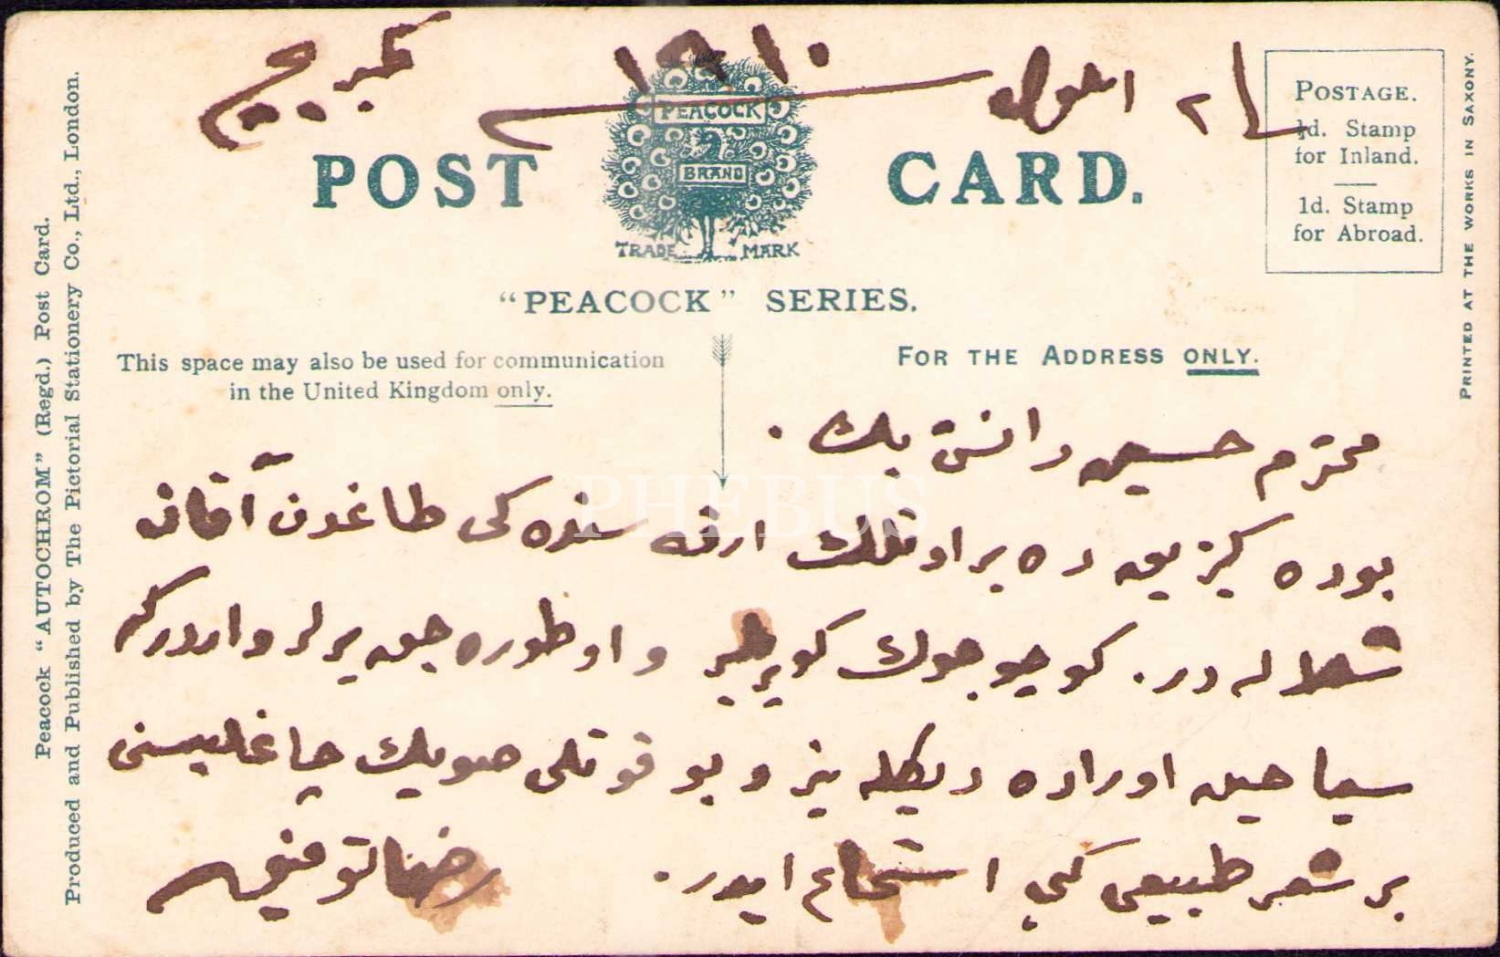 ٢١ ايلول ١٩١٠ كمبريج
POST CARD.
PEACOCK
BRAND
TRADE MARK
"PEACOCK" SERIES.
POSTAGE.
½d. Stamp
for Inland.
1d. Stamp
for Abroad.
This space may also be used for communication
in the United Kingdom only.
FOR THE ADDRESS ONLY.
Peacock "AUTOCHROM" (Regd.) Post Card.
Produced and Published by The Pictorial Stationery Co., Ltd., London.
PRINTED AT THE WORKS IN SAXONY.
PHEBUS
محترم حسين دانش بك .
بوده كزين ده بر اوتلك ارقه سنده كى طاغدن آقان
شلاله در . كوچوجوك كوپريلر و اوطوره جق يرلر واردركه
سياحين اوراده ديكله نير و بو قوتلى صويك چاغليسنى
بر شعر طبيعى كبى استماع ايدر .
رضا توفيق